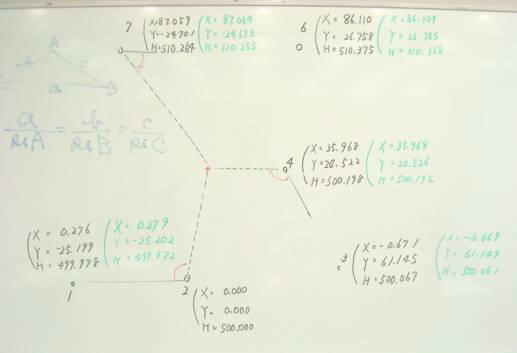 7
X=87.059
Y=-24.701
H=510.264
X= 87.064
Y= -24.693
H= 510.255
6
X= 86.110
Y= 26.758
H= 510.375
X= 86.109
Y= 26.765
H= 510.368
A
b
c
a
B
a/sinA = b/sinB = c/sinC
4
X=35.968
Y=20.522
H=500.198
X=35.968
Y=20.526
H=500.192
X= 0.276
Y= -25.199
H= 499.978
X= 0.279
Y= -25.202
H= 499.972
1
2
X= 0.000
Y= 0.000
H= 500.000
3
X=-0.671
Y= 61.145
H= 500.067
X=-0.669
Y= 61.149
H= 500.061